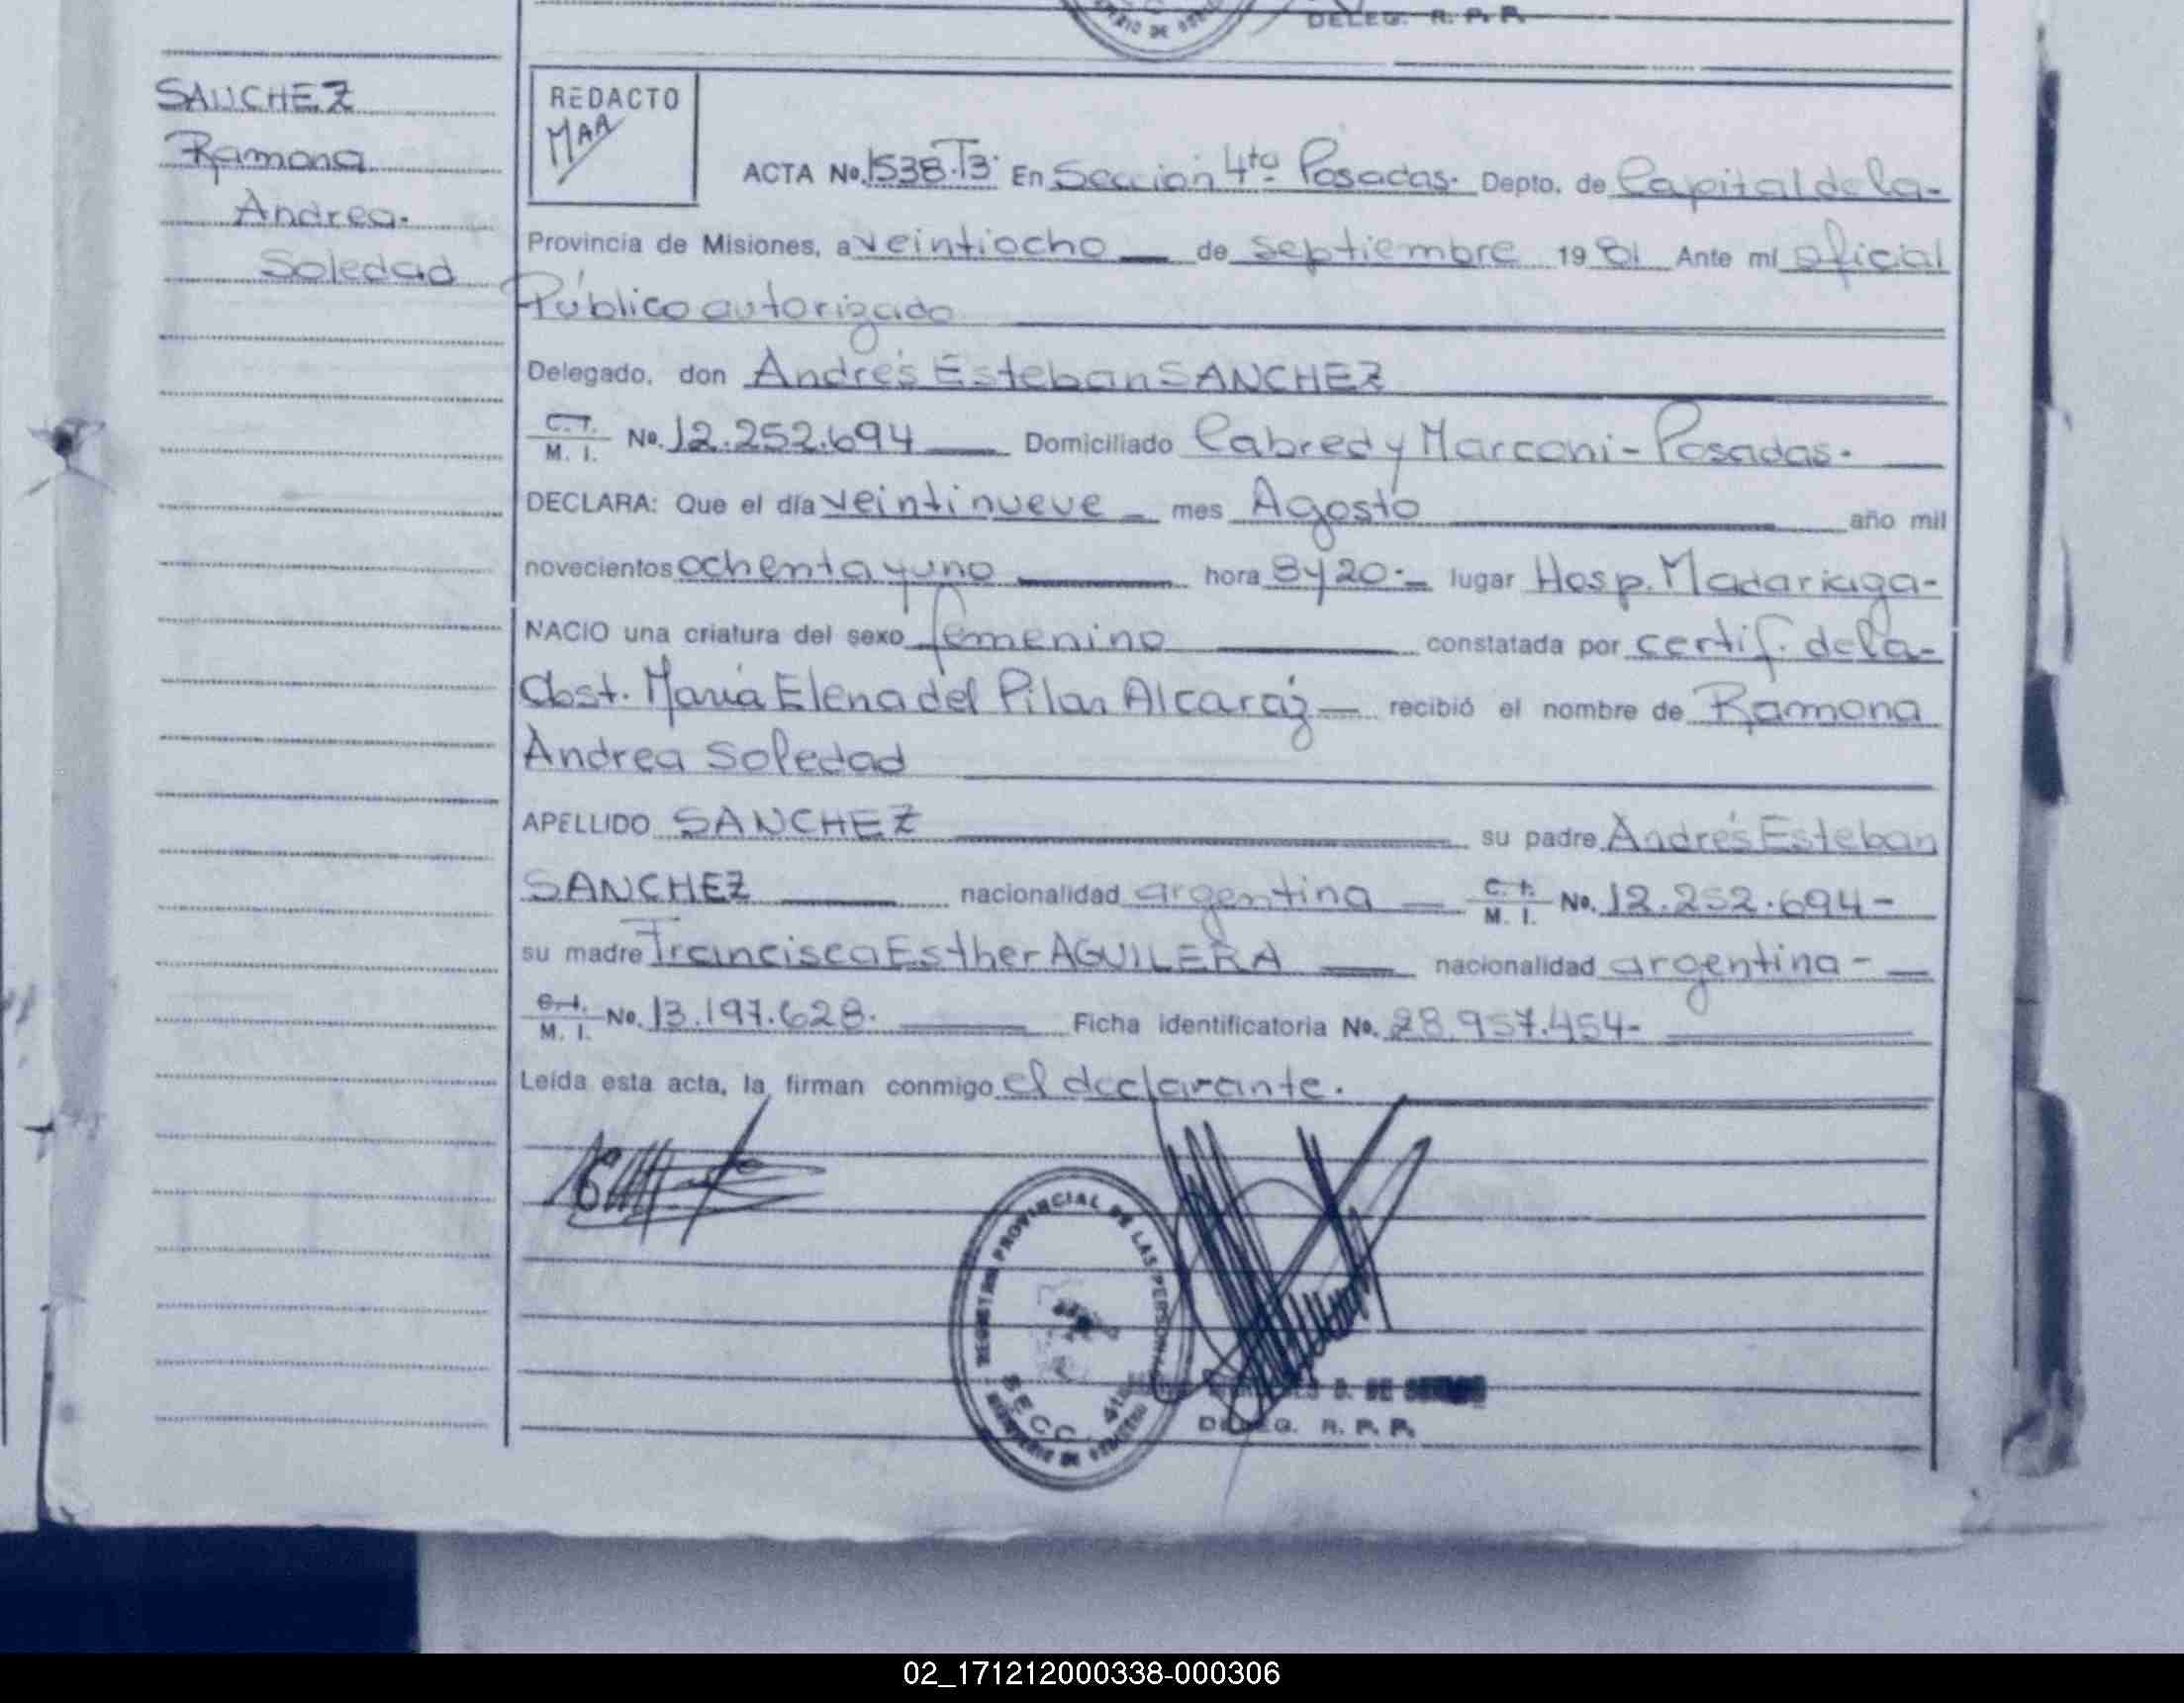 DELEG. R. P. P.
SANCHEZ
Ramona
Andrea.
Soledad
REDACTO
MAA
ACTA No. 1538. T3. En Sección 4ta Posadas. Depto. de Capital de la-
Provincia de Misiones, a veintiocho de septiembre 1981 Ante mí oficial
Público autorizado
Delegado, don Andrés Esteban SANCHEZ
C. I. M. I. No. 12.252.694 Domiciliado Cabred y Marconi - Posadas.
DECLARA: Que el día veintinueve mes Agosto año mil
novecientos ochenta y uno hora 8 y 20. lugar Hosp. Madariaga-
NACIO una criatura del sexo femenino constatada por certif. de la-
Obst. María Elena del Pilar Alcaráz recibió el nombre de Ramona
Andrea Soledad
APELLIDO SANCHEZ su padre Andrés Esteban
SANCHEZ nacionalidad argentina C. I. M. I. No. 12.252.694-
su madre Francisca Esther AGUILERA nacionalidad argentina-
C. I. M. I. No. 13.197.628. Ficha identificatoria No. 28.957.454-
Leída esta acta, la firman conmigo el declarante.
REGISTRO PROVINCIAL DE LAS PERSONAS
SECC. 4ta
DELEG. R. P. P.
02_171212000338-000306